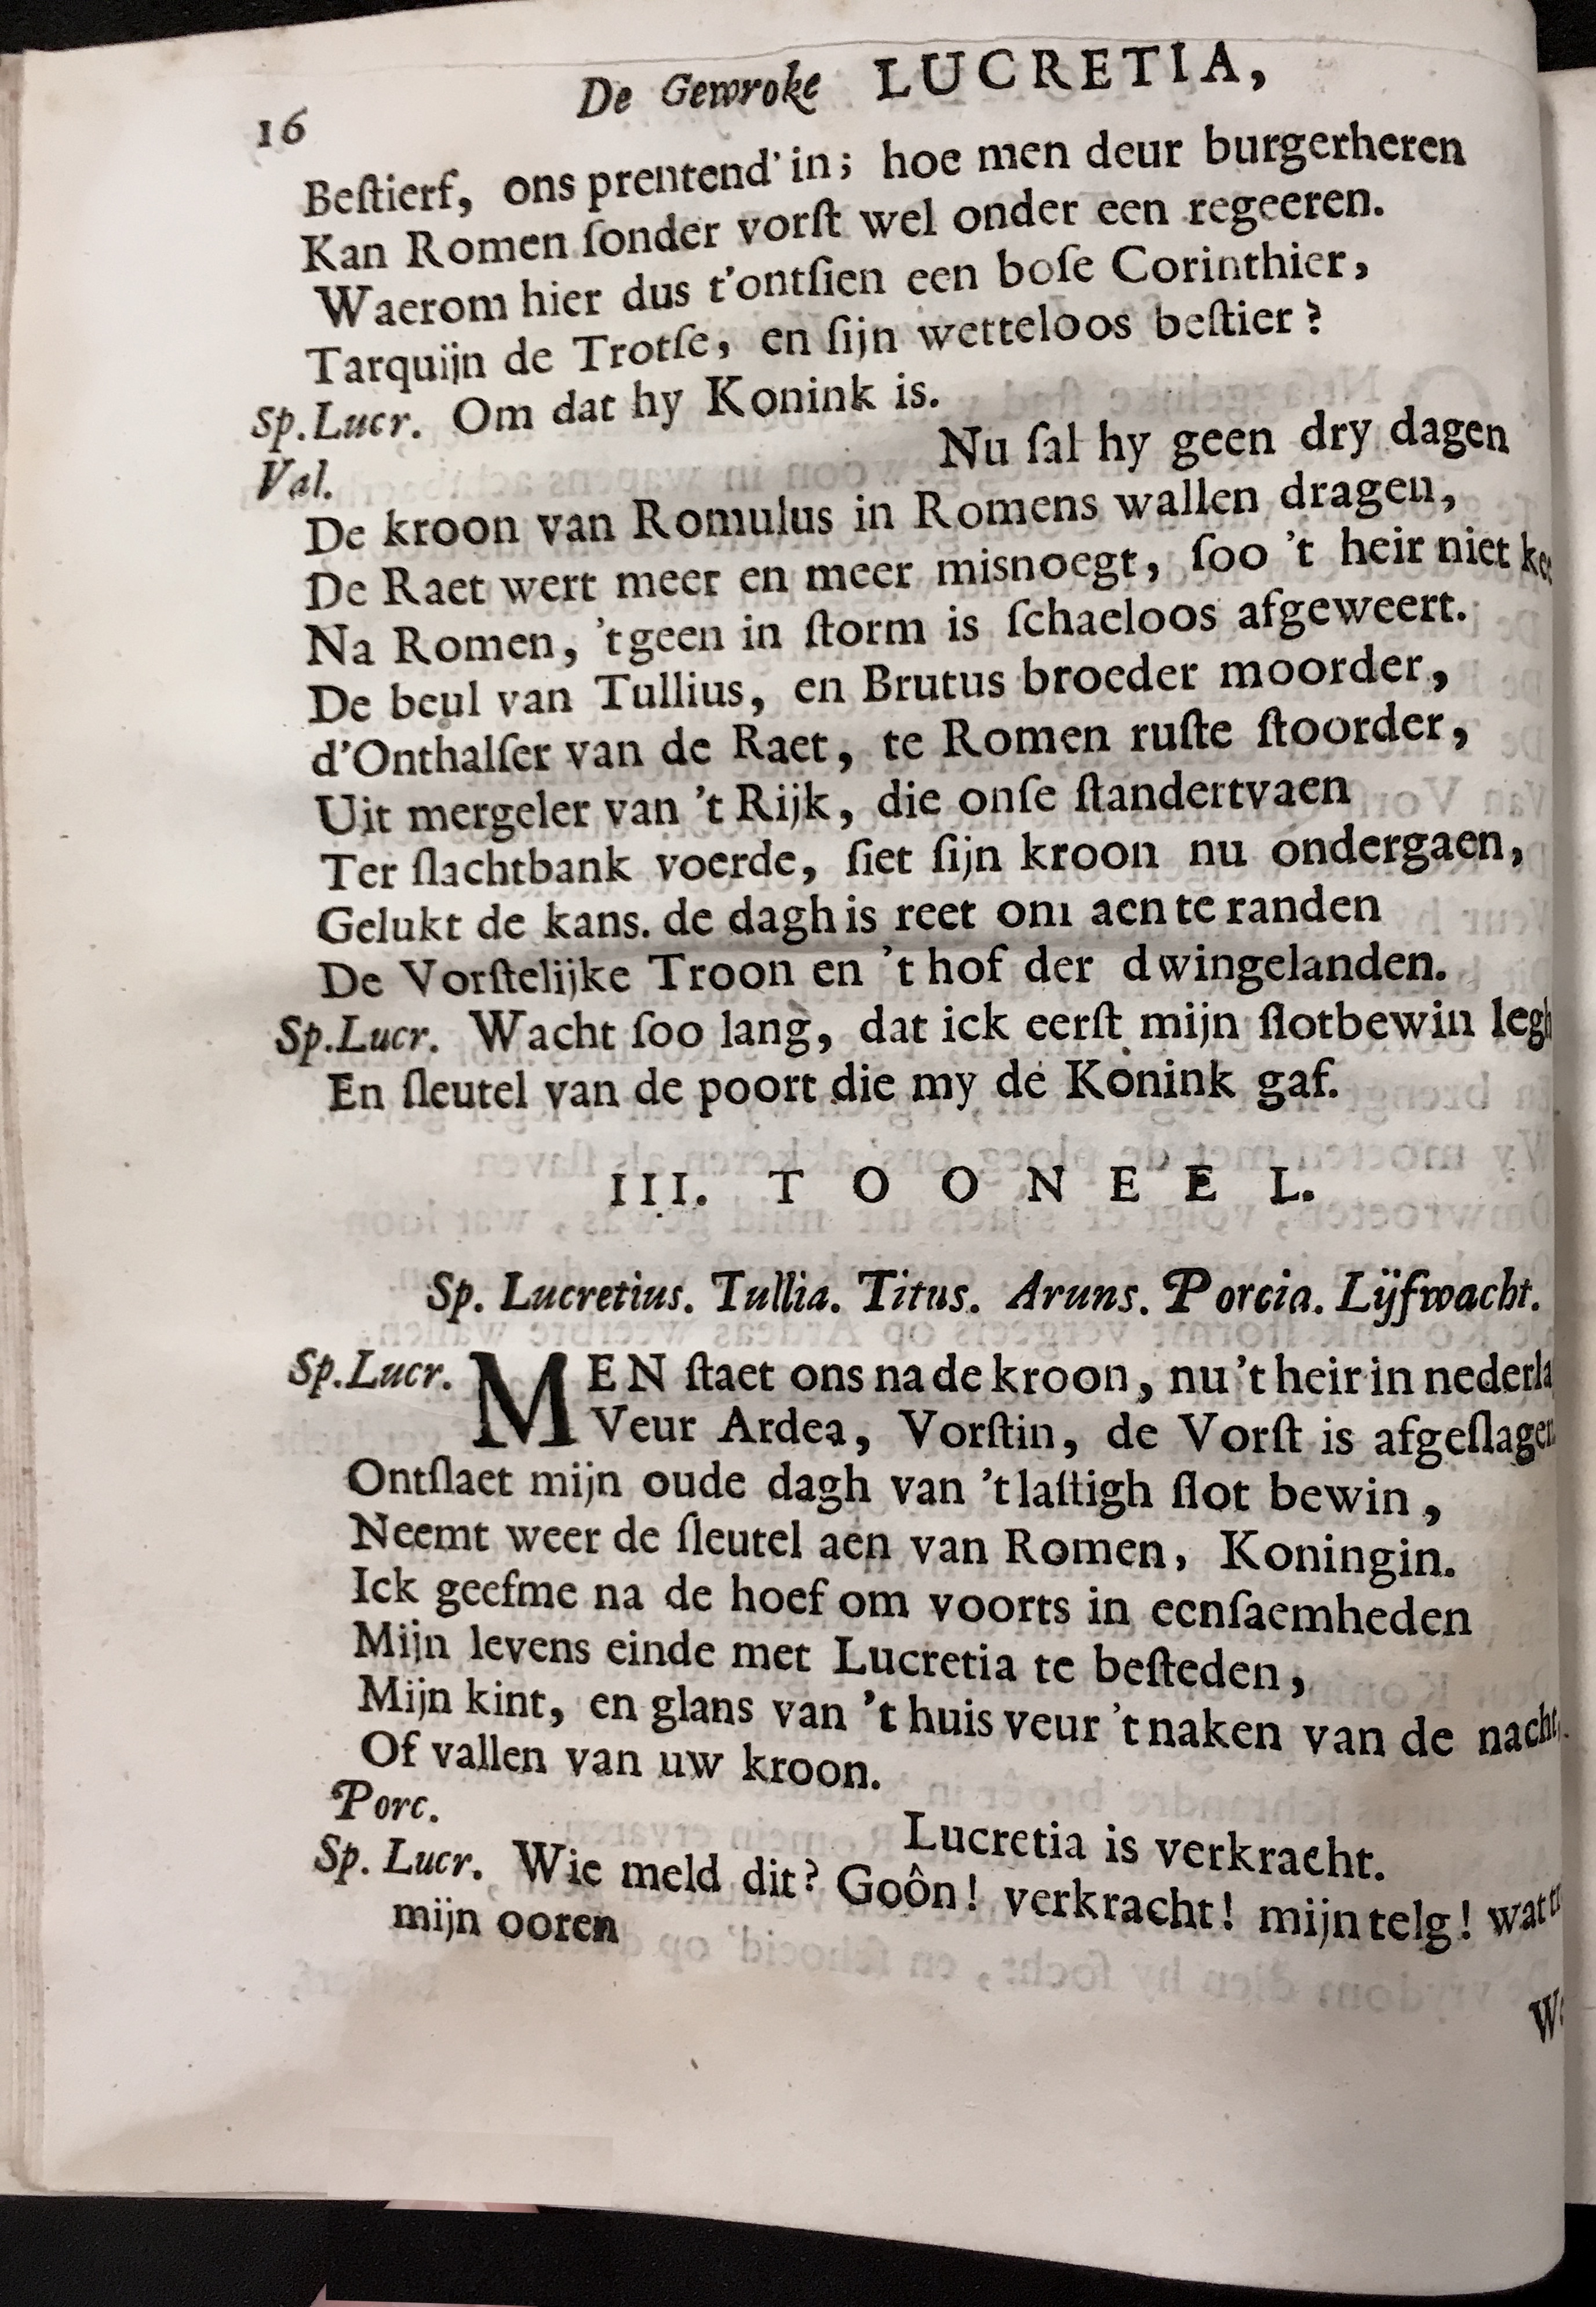 16
De Gewroke LUCRETIA,
Beſtierf, ons prentend' in; hoe men deur burgerheren
Kan Romen ſonder vorſt wel onder een regeeren.
Waerom hier dus t'ontſien een boſe Corinthier,
Tarquijn de Trotſe, en ſijn wetteloos beſtier?
Sp. Lucr. Om dat hy Konink is.
Val. Nu ſal hy geen dry dagen
De kroon van Romulus in Romens wallen dragen,
De Raet wert meer en meer misnoegt, ſoo 't heir niet
Na Romen, 't geen in ſtorm is ſchaeloos afgeweert.
De beul van Tullius, en Brutus broeder moorder,
d'Onthalſer van de Raet, te Romen ruſte ſtoorder,
Uit mergeler van 't Rijk, die onſe ſtandertvaen
Ter ſlachtbank voerde, ſiet ſijn kroon nu ondergaen,
Gelukt de kans. de dagh is reet om aen te randen
De Vorſtelijke Troon en 't hof der dwingelanden.
Sp. Lucr. Wacht ſoo lang, dat ick eerſt mijn ſlotbewin
En ſleutel van de poort die my de Konink gaf.
III. TOONEEL.
Sp. Lucretius. Tullia. Titus. Aruns. Porcia. Lÿfwacht.
Sp. Lucr. MEN ſtaet ons na de kroon, nu 't heir in
Veur Ardea, Vorſtin, de Vorſt is afgeſlagen
Ontſlaet mijn oude dagh van 't laſtigh ſlot bewin,
Neemt weer de ſleutel aen van Romen, Koningin.
Ick geefme na de hoef om voorts in eenſaemheden
Mijn levens einde met Lucretia te beſteden,
Mijn kint, en glans van 't huis veur 't naken van de nacht,
Of vallen van uw kroon.
Porc. Lucretia is verkracht.
Sp. Lucr. Wie meld dit? Goôn! verkracht! mijn telg! wat
mijn ooren